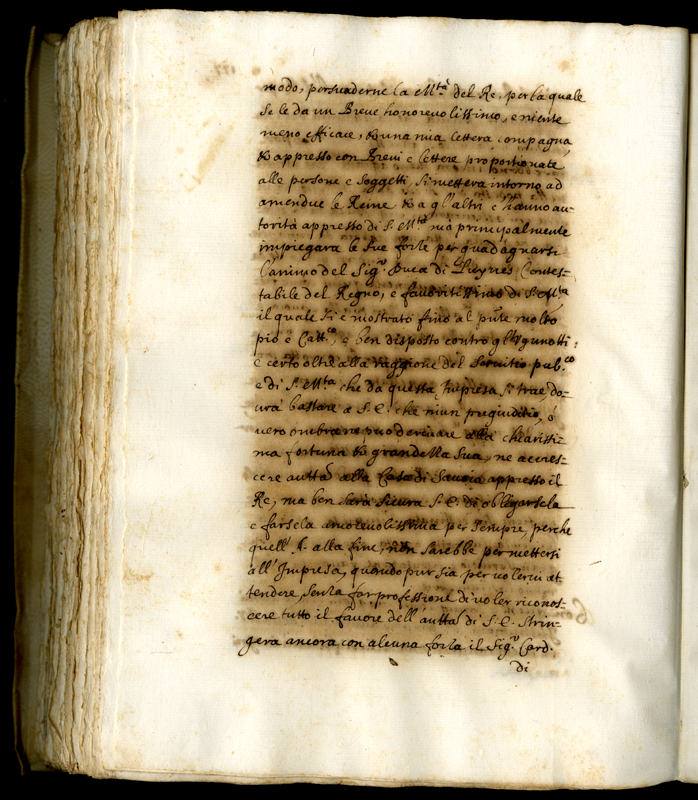 modo, persuaderne la M.tà del Re, per la quale
se le da un Breve honorevolissimo, e niente
meno efficace, & una mia lettera compagna,
& appresso con Brevi e lettere proportionate
alle persone e soggetti, si metterà intorno ad
amendue le Reine & a gl'altri c'hanno au-
torità appresso di S. M.tà ma principalmente
impiegarà le sue forze per guadagnarsi
l'animo del Sig.r Duca di Luynes Contes-
tabile del Regno, e favoritissimo di S. M.tà
il quale si è mostrato fino al pnte molto
pio e Catt.co, e ben disposto contro gli Ugunotti:
e certo oltre alla raggione del Servitio pub.co
e di S. M.ta che da questa Impresa si trae do-
vrà bastare a S. E. che niun pregiuditio, ò
vero ombra ne può derivare alla chiarissi-
ma fortuna & grandezza sua, ne accres-
cere autta alla Casa di Savoia appresso il
Re, ma ben sarà sicura S. E. di obligarsela
e farsela amorevolissima per sempre, perche
quell'A. alla fine, non sarebbe per mettersi
all'Impresa, quando pur sia per volervi at
tendere, senza far professione di voler riconos-
cere tutto il favore dell'autta di S. E. Strin-
gerà ancora con alcuna forza il Sig.r Card.
di